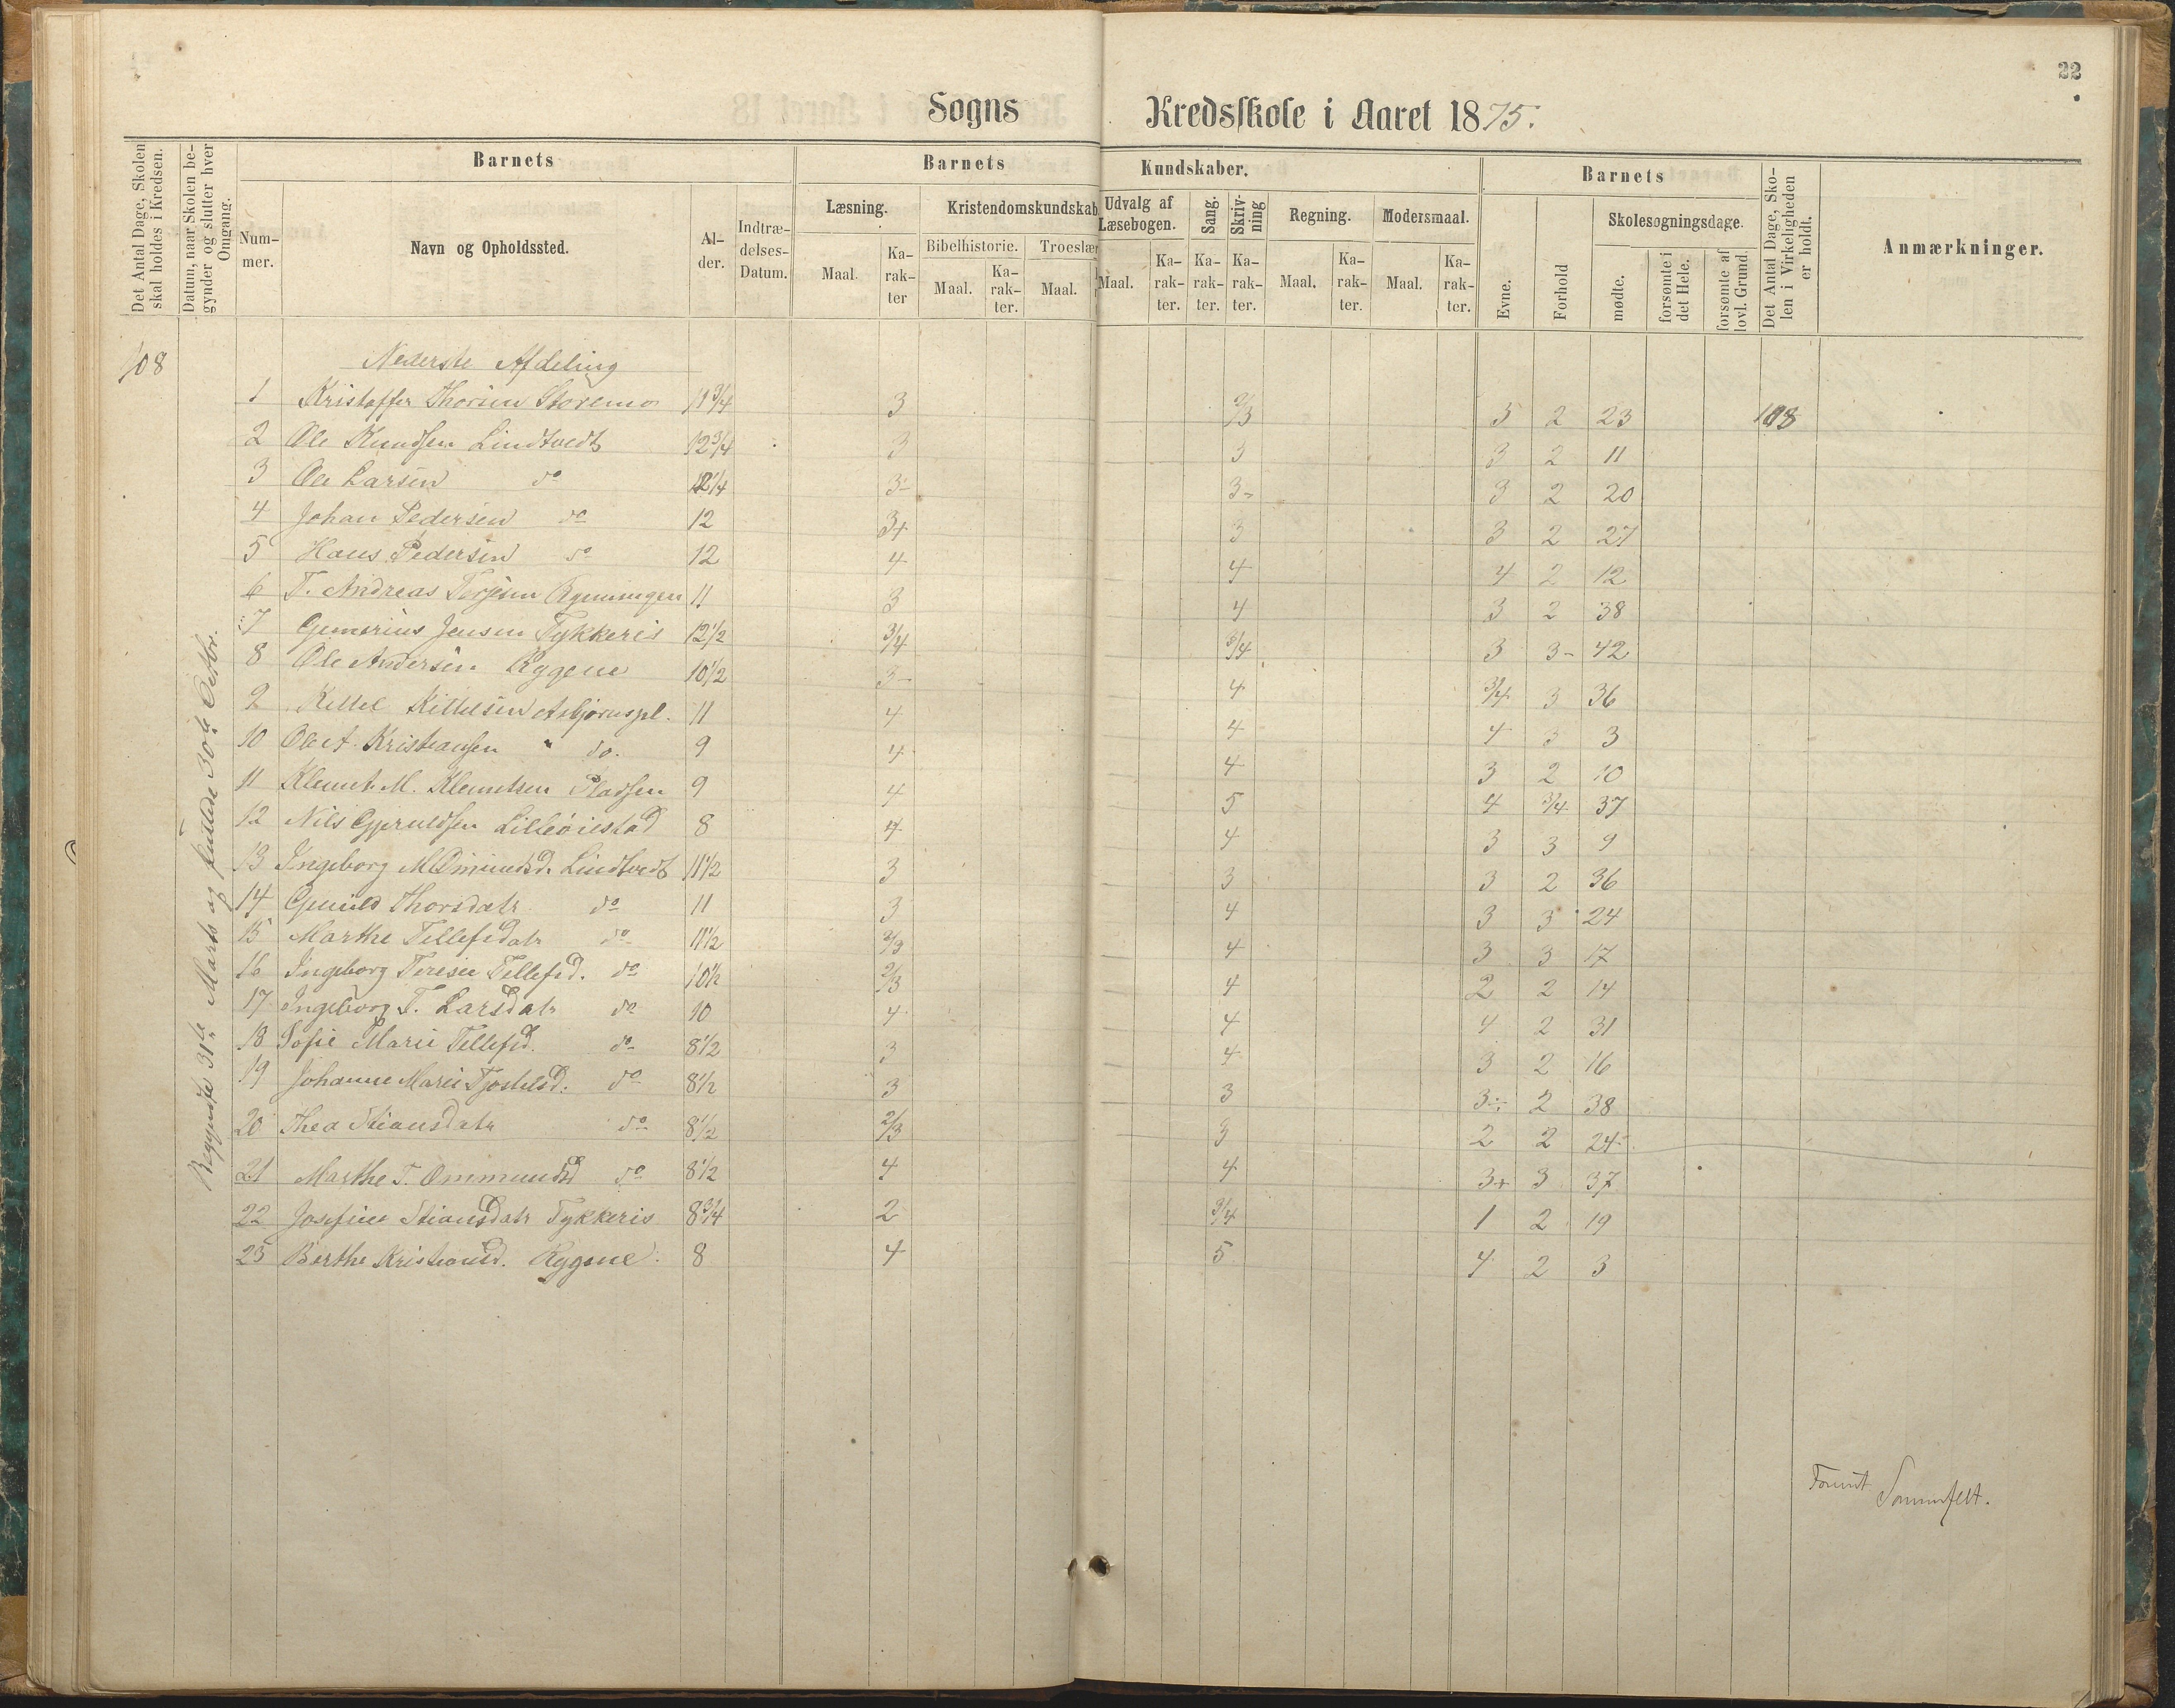 22
Sogns Kredsskole i Aaret 1875.
Det Antal Dage, Skolen skal holdes i Kredsen.
Datum, naar Skolen begynder og slutter hver Omgang.
Barnets
Nummer.
Navn og Opholdssted.
Alder.
Indtrædelses-Datum.
Barnets Kundskaber.
Læsning.
Maal.
Karakter
Kristendomskundskab
Bibelhistorie.
Maal.
Karakter.
Troeslær
Maal.
Udvalg af Læsebogen.
Maal.
Karakter.
Sang.
Karakter.
Skrivning
Karakter.
Regning.
Maal.
Karakter.
Modersmaal.
Maal.
Karakter.
Barnets
Evne.
Forhold
Skolesøgningsdage.
mødte.
forsømte i det Hele.
forsømte af lovl. Grund.
Det Antal Dage, Skolen i Virkeligheden er holdt.
Anmærkninger.
108
Begyndte 31te Marts og sluttede 30te Octbr.
Nederste Afdeling
1 Kristoffer Thorsen Storemo 11 3/4 3 2/3 3 2 23 108
2 Ole Knudsen Lindtvedt 12 3/4 3 3 3 2 11
3 Ole Larsen do 12 1/4 3- 3- 3 2 20
4 Johan Pedersen do 12 3+ 3 3 2 27
5 Hans Pedersen do 12 4 4 4 2 12
6 T. Andreas Terjesen 11 3 4 3 2 38
7 Jensen Tykkeris 12 1/2 3/4 3/4 3 3- 42
8 Ole Andersen Rygene 10 1/2 3- 4 3/4 3 36
9 Kittel Kittelsen Asbjørnspl. 11 4 4 4 3 3
10 Ole A. Kristiansen " do. 9 4 4 3 2 10
11 Klemet M. Klemetsen Pladsen 9 4 5 4 3/4 37
12 Nils Gjeruldsen Lilleøiestad 8 4 4 3 3 9
13 Ingeborg M Omundsd. Lindtvedt 11 1/2 3 3 3 2 36
14 Gunild Thorsdatr do 11 3 4 3 3 24
15 Marthe Tellefsdatr do 11 1/2 2/3 4 3 3 17
16 Ingeborg Teresie Tellefsd. do 10 1/2 2/3 4 2 2 14
17 Ingeborg T. Larsdatr do 10 4 4 4 2 31
18 Sofie Marie Tellefsd. do 8 1/2 3 4 3 2 16
19 Johanne Marie Tjostelsd. do 8 1/2 3 3 3÷ 2 38
20 Thea Stiansdatr do 8 1/2 2/3 3 2 2 24
21 Marthe T. Ommundsd do 8 1/2 4 4 3+ 3 37
22 Josefine Stiansdatr Tykkeris 8 3/4 2 3/4 1 2 19
23 Berthe Kristiansd. Rygene. 8 4 5 4 2 3
Sommfelt.